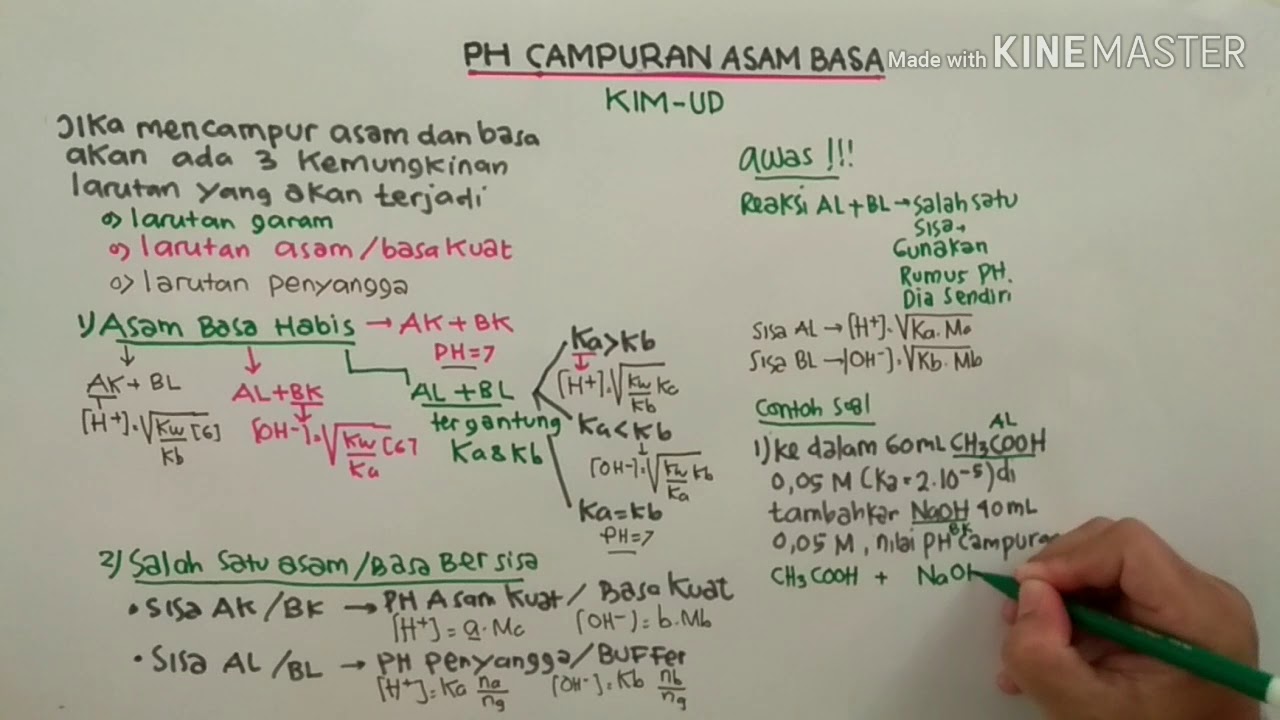 PH CAMPURAN ASAM BASA
Made with KINEMASTER
KIM-UD
Jika mencampur asam dan basa
akan ada 3 Kemungkinan
larutan yang akan terjadi
o) larutan garam
o) larutan asam/basa kuat
o) larutan penyangga
1) Asam Basa Habis → AK + BK
PH=7
AK + BL
[H+]=√Kw/Kb [G]
AL+BK
[OH-]=√Kw/Ka [G]
AL + BL
tergantung
Ka & Kb
Ka>Kb
[H+]=√Kw/Kb Kc
Ka<Kb
[OH-]=√Kw/Ka Kb
Ka=Kb
PH=7
2) Salah Satu asam/Basa Bersisa
• Sisa AK/BK → PH Asam Kuat/Basa Kuat
[H+]=a.Mc [OH-]=b.Mb
• Sisa AL/BL → PH Penyangga/BUFFer
[H+]=Ka na/ng [OH-]=Kb nb/ng
awas !!!
Reaksi AL+BL→Salah satu
Sisa→
Gunakan
Rumus PH.
Dia Sendiri
Sisa AL→[H+]=√Ka.Ma
Sisa BL→[OH-]=√Kb.Mb
Contoh Soal
AL
1) ke dalam 60mL CH3COOH
0,05 M (Ka=2.10-5) di
tambahkan NaOH 40mL
BK
0,05 M, nilai PH Campuran
CH3COOH + NaOH